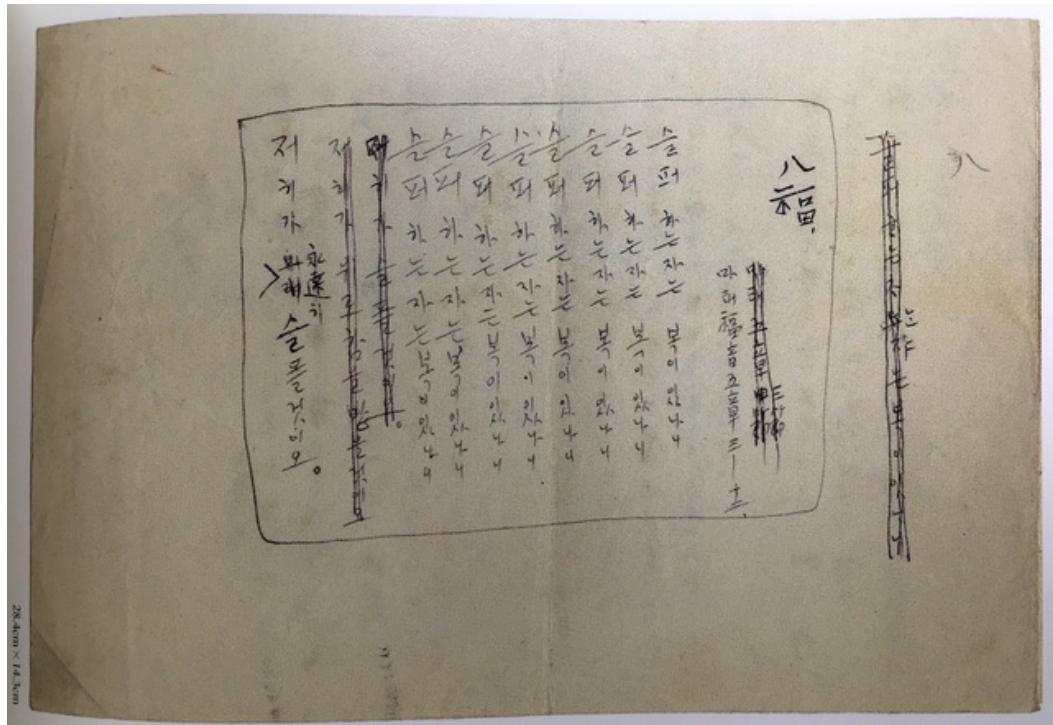 八
八福.
마태福音五章 三 — 十二.
슬퍼 하는자는 복이 있나니
슬퍼 하는자는 복이 있나니
슬퍼 하는자는 복이 있나니
슬퍼 하는자는 복이 있나니
슬퍼 하는자는 복이 있나니
슬퍼 하는자는 복이 있나니
슬퍼 하는자는 복이 있나니
슬퍼 하는자는 복이 있나니
저히가 슬플것이오。
저히가 위로함을받을것이오
저히가 오래 永遠히 슬플것이오。
28.4cm × 14.3cm